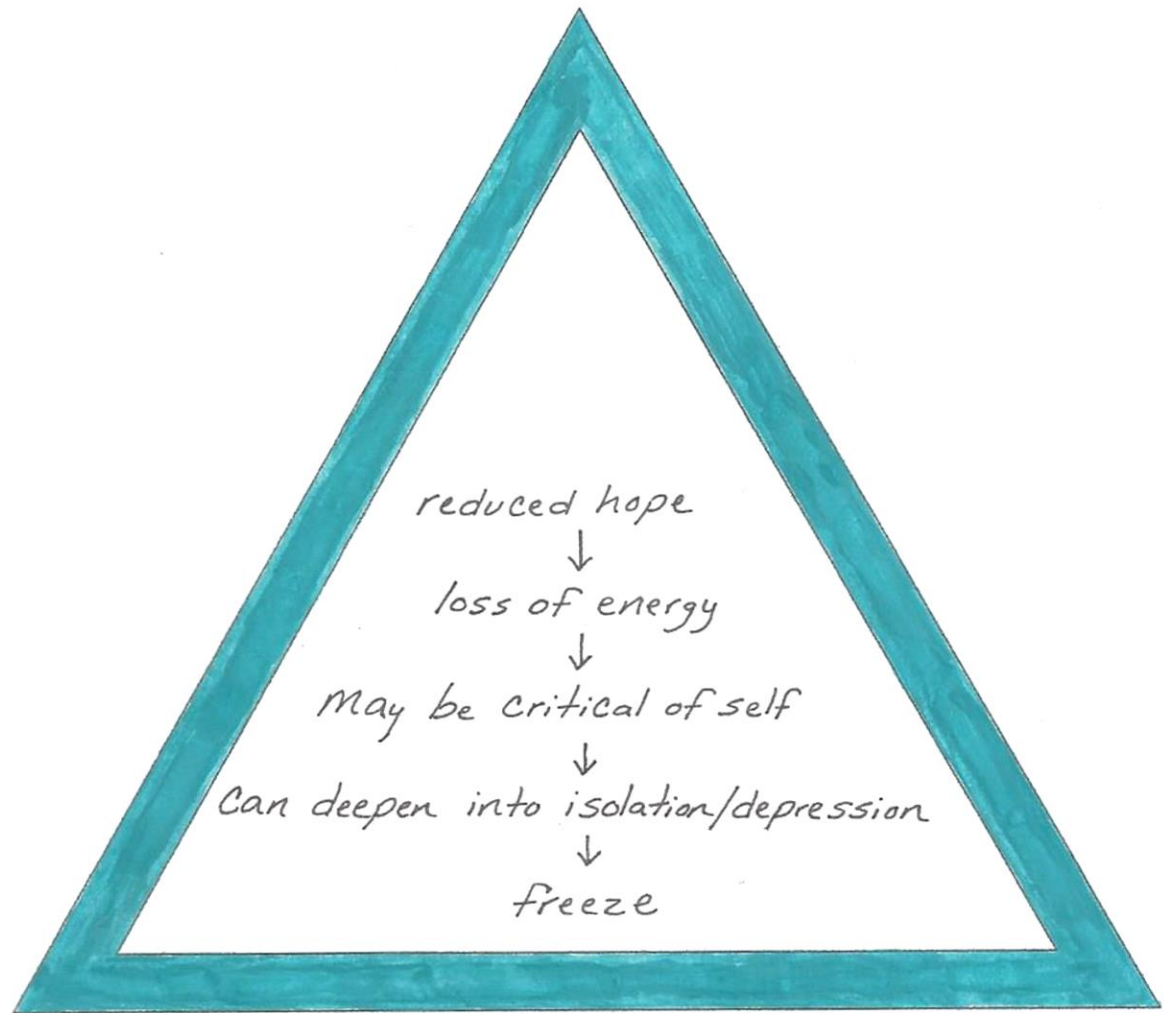 reduced hope
↓
loss of energy
↓
may be critical of self
↓
can deepen into isolation/depression
↓
freeze